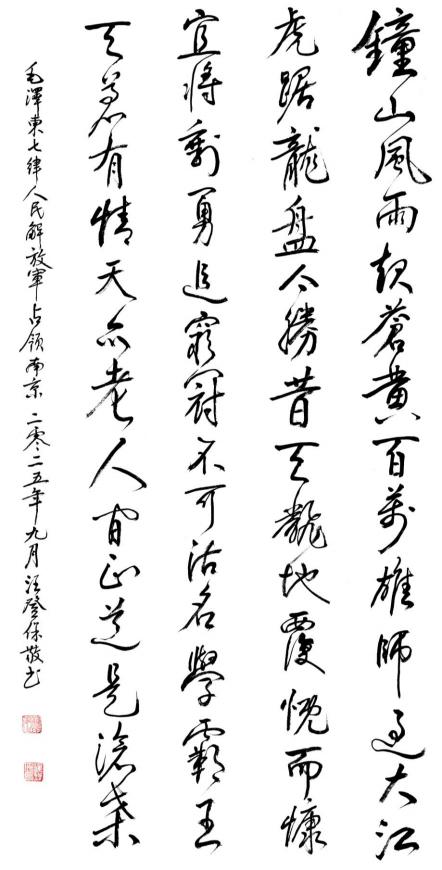 鐘山風雨起蒼黄百萬雄師過大江
虎踞龍盤今勝昔天翻地覆慨而慷
宜將剩勇追窮寇不可沽名學霸王
天若有情天亦老人間正道是滄桑
毛澤東七律人民解放軍占领南京二零二五年九月汪登保敬书